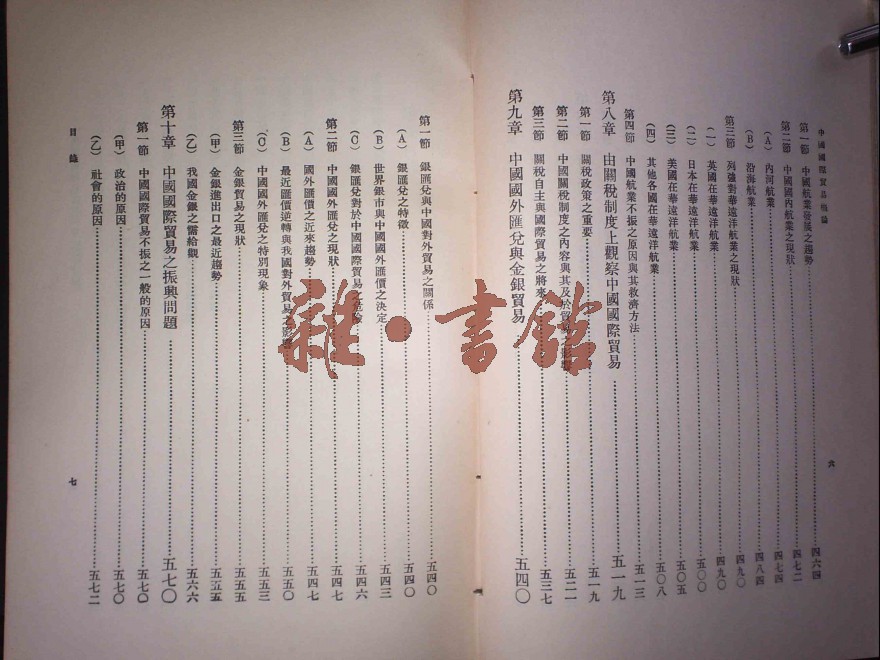 中國國際貿易概論
第一節 中國航業發展之趨勢 四六四
第二節 中國國內航業之現狀 四七二
(A) 內河航業 四七四
(B) 沿海航業 四八四
第三節 列強對華遠洋航業之現狀 四九〇
(一) 英國在華遠洋航業 四九〇
(二) 日本在華遠洋航業 五〇〇
(三) 美國在華遠洋航業 五〇五
(四) 其他各國在華遠洋航業 五〇八
第四節 中國航業不振之原因與其救濟方法 五一三
第八章 由關稅制度上觀察中國國際貿易 五一九
第一節 關稅政策之重要 五一九
第二節 中國關稅制度之內容與其及於貿易 五二一
第三節 關稅自主與國際貿易之將來 五三七
第九章 中國國外匯兌與金銀貿易 五四〇
六
第一節 銀匯兌與中國對外貿易之關係 五四〇
(A) 銀匯兌之特徵 五四〇
(B) 世界銀市與中國國外匯價之決定 五四三
(C) 銀匯兌對於中國國際貿易之危險 五四六
第二節 中國國外匯兌之現狀 五四七
(A) 國外匯價之近來趨勢 五四七
(B) 最近匯價逆轉與我國對外貿易之影響 五五〇
(C) 中國國外匯兌之特別現象 五五三
第三節 金銀貿易之現狀 五五五
(甲) 金銀進出口之最近趨勢 五五五
(乙) 我國金銀之需給觀 五六六
第十章 中國國際貿易之振興問題 五七〇
第一節 中國國際貿易不振之一般的原因 五七〇
(甲) 政治的原因 五七〇
(乙) 社會的原因 五七二
目錄
七
雜·書館